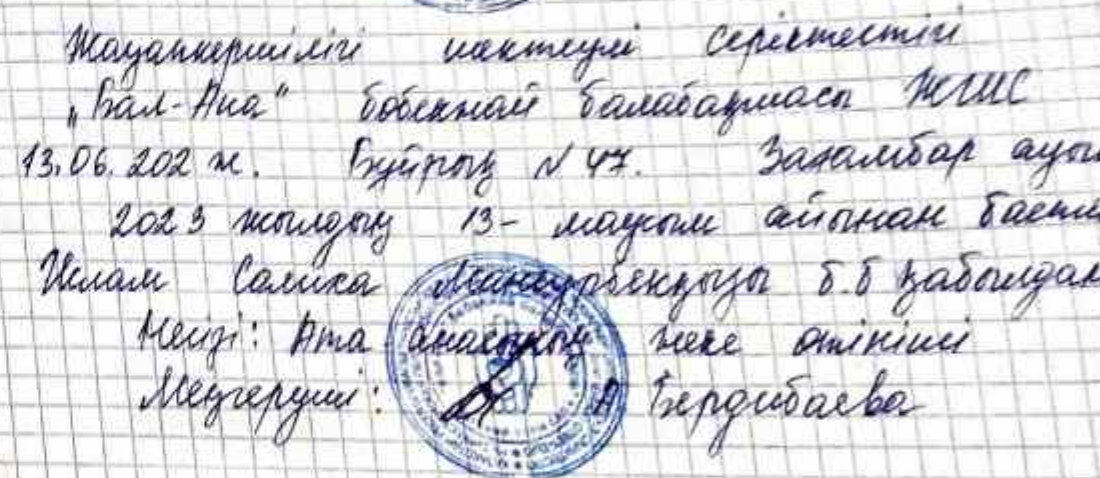 Жауапкершілігі шектеулі серіктестігі
„Бал-Ана" бөбекжай балабақшасы ЖШС
13.06.202 ж. Бұйрық № 47. Зағамбар ауыл
2023 жылдың 13- маусым айынан бастап
Ислам Салиха Мансурбекқызы б.б қабылдан
Негізі: Ата анасының жеке өтініші
Меңгеруші: А Бердибаева